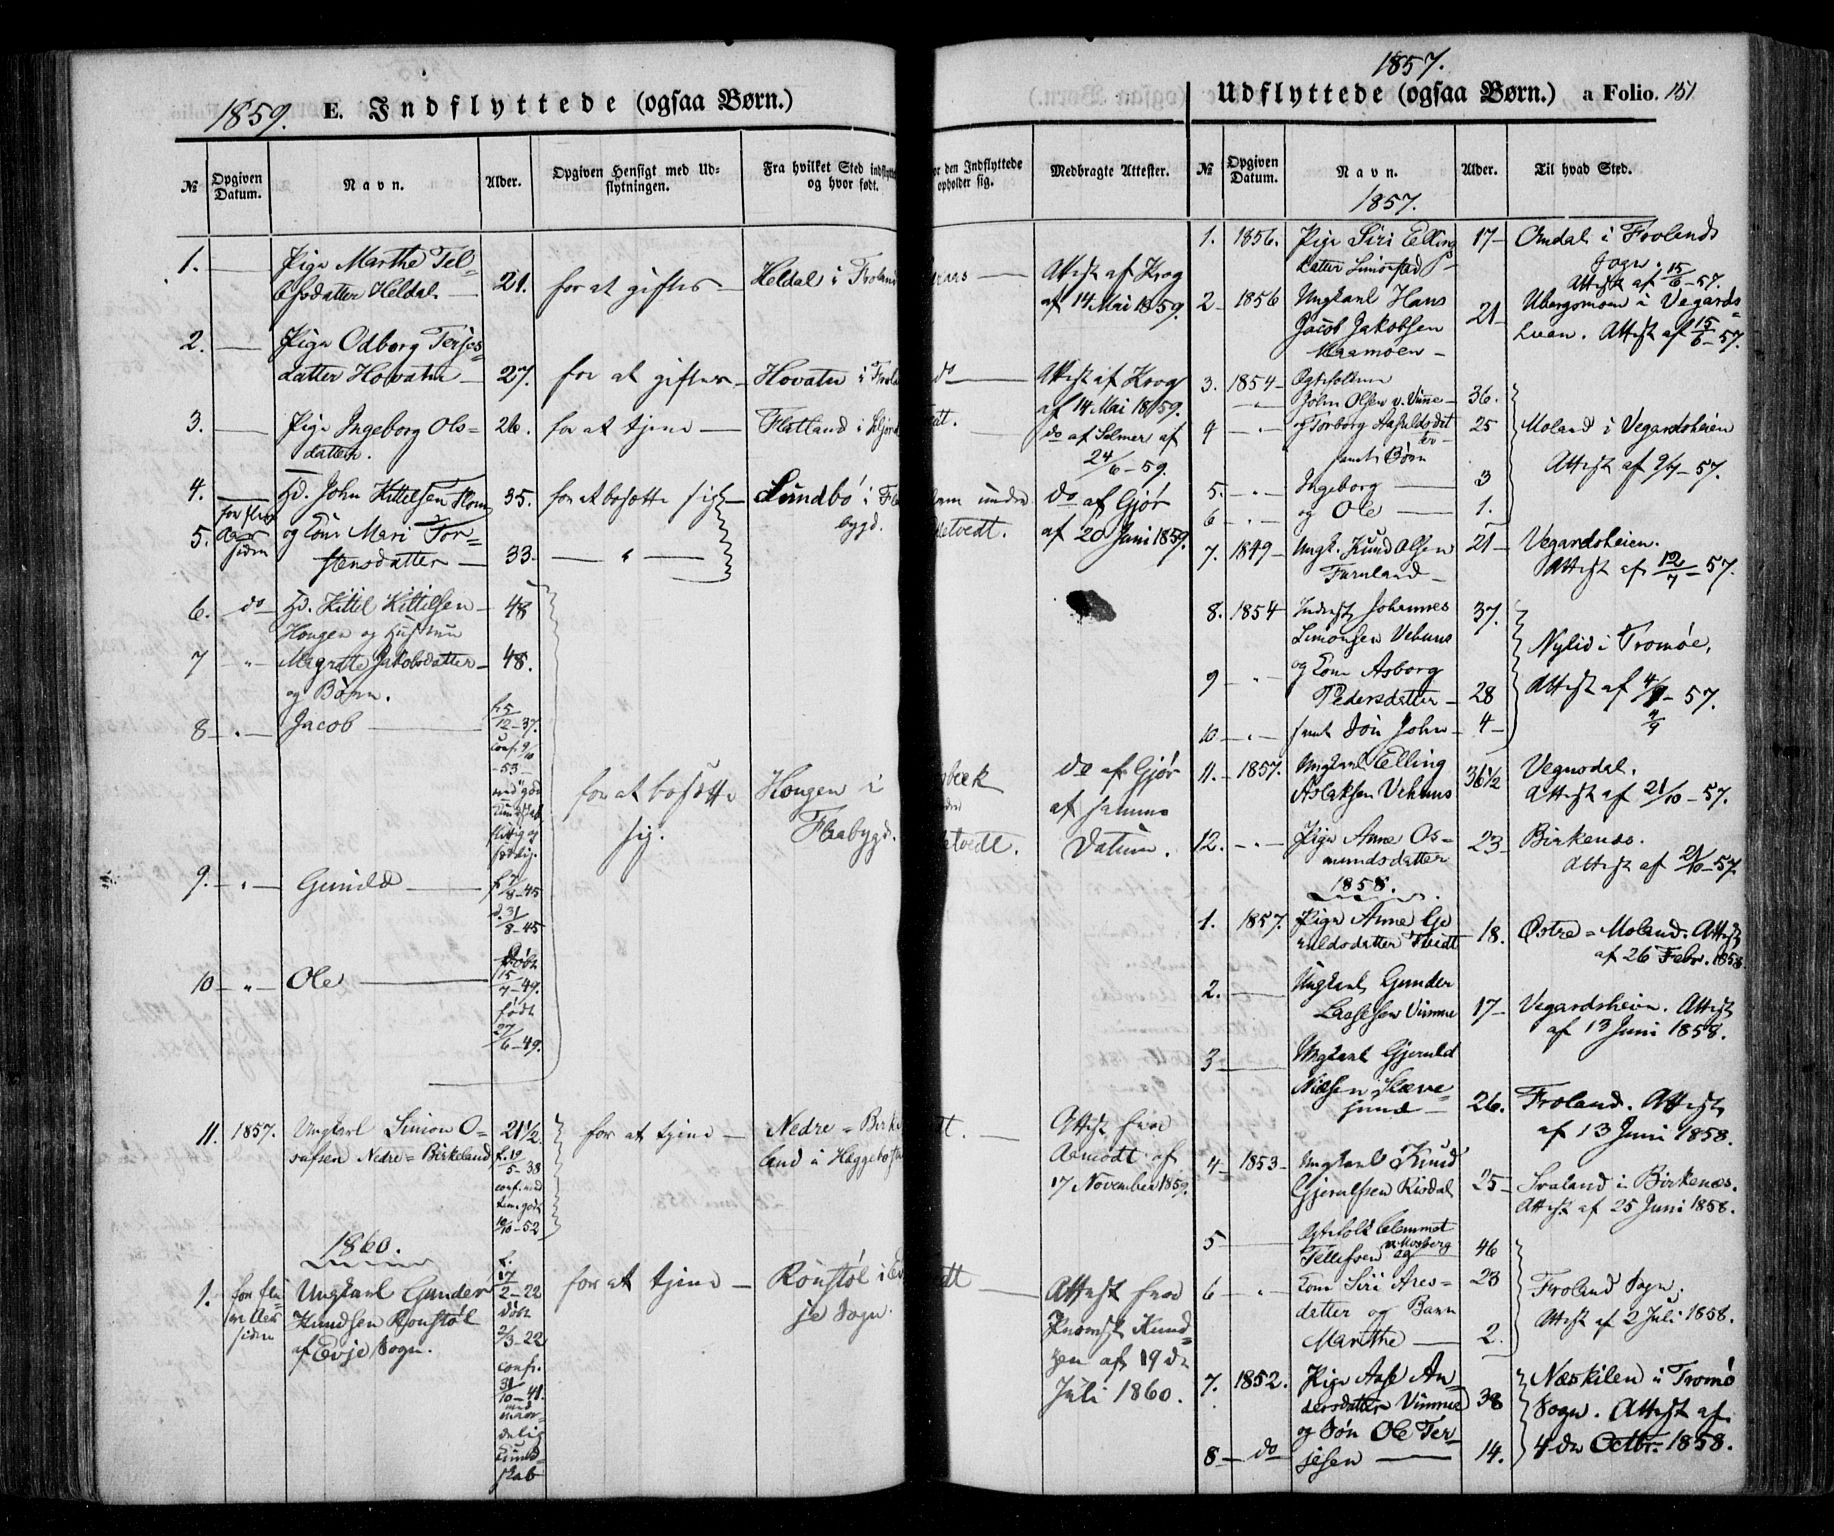 1859. E. Indflyttede (ogsaa Børn.)
№ Opgiven Datum. Navn. Alder. Opgiven Hensigt med Udflytningen. Fra hvilket Sted indflytt og hvor født.
or den Indflyttede opholder sig. Medbragte Attester.
1. — Pige Marthe Tel-
lefsdatter Heldal — 21. for at giftes — Heldal i Froland — Attest af Krog
af 14 Mai 1859.
2. — Pige Odborg Terjes-
datter Hovatn — 27. for at giftes — Hovatn i Frol do — Attest af Krog
af 14 Mai 1859.
3. — Pige Ingeborg Ols- 26. for at tjene — Flatland i do af Salmer af
datter. 24/6 - 59.
4. Hd. John Kittelsen 35. for at bosætte sig — Lundbø i Fla do af Gjør
bygd. af 20 Juni 1859.
5. for flere Aar siden og Kone Mari Tor-
stensdatter — 33. — " —
6. do Hd. Kittel Kittelsen — 48
Hougen og Hustrue
7 - " - Magrete Jakobsdatter — 48.
og Børn.
8 - " - Jacob — f. 5/12 - 37.
conf. 9/10
- 53 —
med god
Kundskab
flittig og
sædelig.
for at bosætte sig. Hougen i Flabygd. do af Gjør
af samme
Datum.
9. - " - Gunild — f. 7/8 - 45
d. 31/8 - 45
10 - " - Ole — Døbt
15/7 - 49.
født
27/6 - 49.
11. 1857. Ungkarl Simon O- 21½. for at tjene — Nedre = Birke
Nedre = Birkeland f. 19/5 - 38 land i Hæggebost
conf. med
10/10 - 52
Attest fra
Aamodt af
17 November 1859.
1860.
1. for fle-
re Aar
siden
Ungkarl Gunder
Knudsen Ronstøl
af Evje Sogn.
f.
17/2 - 22
døbt
2/3 - 22
conf.
31/10 - 41.
med
maa-
delig
Kund-
skab
for at tjene — Ronstøl i Ev
je Sogn.
Attest fra
Knud-
zen af 19 de
Juli 1860.
1857.
Udflyttede (ogsaa Børn.) a Folio. 151
№ Opgiven Datum. Navn. Alder. Til hvad Sted.
1857.
1. 1856. Pige Siri Ellings 17 — Omdal i Frolands
datter Simonstad — Sogn.
Attest af 15/6 - 57.
2 - 1856 Ungkarl Hans 21 — Ubergsmoen i Vegards-
Jacob Jakobsen heien. Attest af 15/6 - 57.
Maamoen —
3. 1854 —
John Olsen v. Vimme — 36.
4 - " - og Torborg Aasuldsdat 25 Moland i Vegardsheien
ter
samt Børn Attest af 9/7 - 57.
5. - " - Ingeborg — 3
6 - " - og Ole — 1.
7. 1849 — Ungk. Knud Olsen 21 — Vegardsheien.
— Attest af 12/7 - 57.
8. 1854 Inderst Johannes 37.
Simonsen Vehuus Nylid i Tromøe,
9 - " - og Kone Asborg
Pedersdatter — 28 Attest af 4/9 - 57.
4/9
10 - " - samt Søn John — 4 —
11. - 1857. Ungkarl Elling 36½ Vegusdal.
Aslaksen Vehuus Attest af 21/10 - 57.
12. - " - Pige Anne Os- 23 Birkenæs.
mundsdatter Attest af 21/10 - 57
1858.
1. 1857. Pige Anne Gje
ruldsdatter Tveidt 18. Østre = Moland. Attest
af 26 Febr. 1858
2. — Ungkarl Gunder
Vimme 17 — Vegardsheien. Attest
af 13 Juni 1858.
3 — Ungkarl Gjeruld
Nielsen Skæve-
lund — 26. Froland. Attest
af 13 Juni 1858.
4 - 1853 — Ungkarl Knud
Gjerulfsen Risdal 25 — Svaland i Birkenæs.
Attest af 25 Juni 1858.
5 — Clemmet
Tellefsen v. Mosberg 46
og
6 - " - Kone Siri Ares- 23 Froland Sogn,
datter og Barn Attest af 2 Juli 1858.
Marthe — 2.
7. 1852. Pige Aase An- Næskilen i Tromø
dersdatter Vimme 38 Sogn. Attest af
8 — do og Søn Ole Ter- 4 de Octbr. 1858.
jesen — 14.